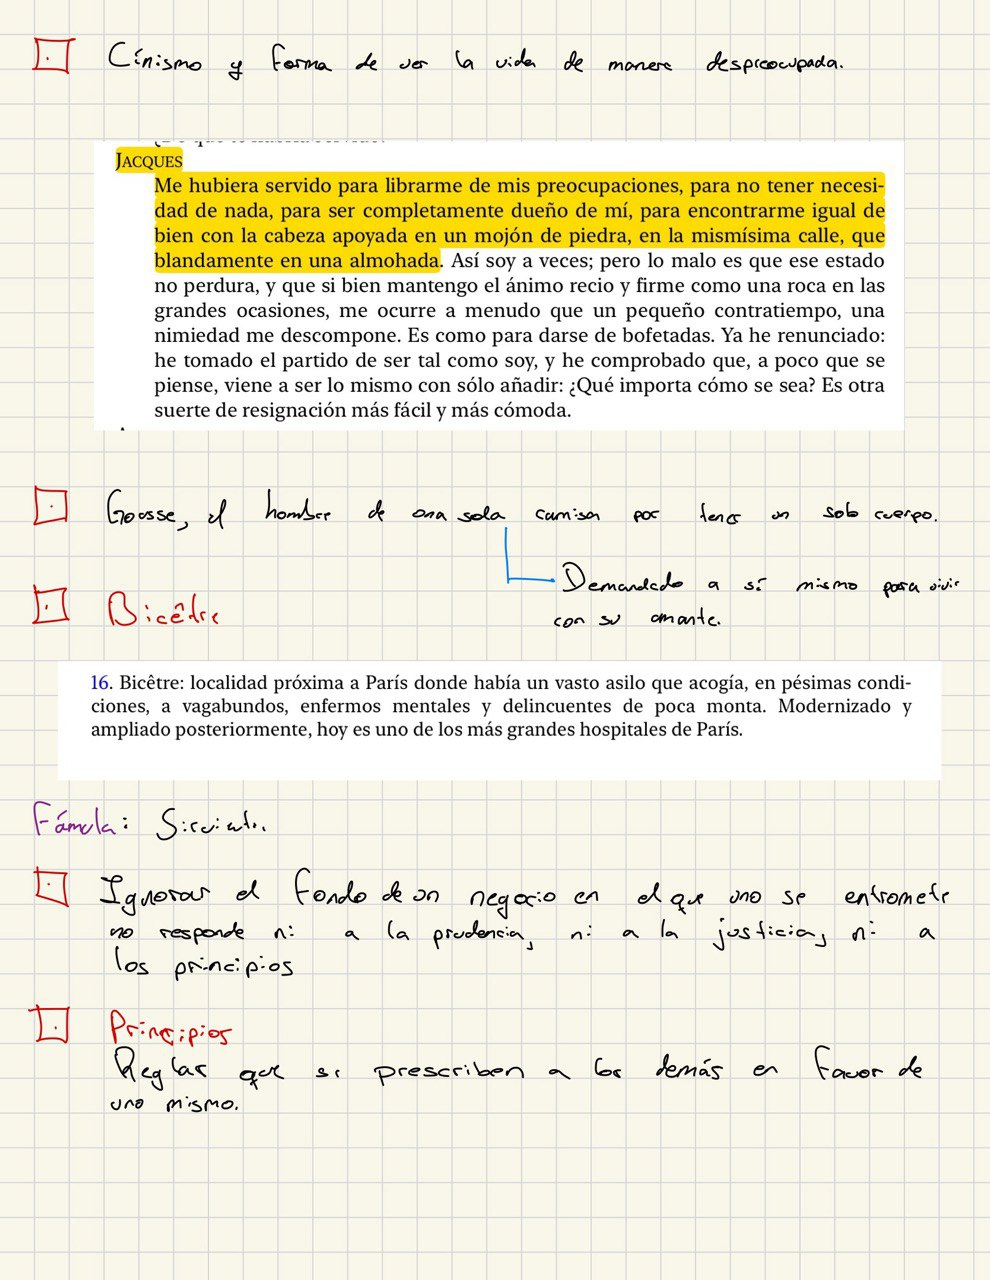 Cinismo y forma de ver la vida de manera despreocupada.
JACQUES
Me hubiera servido para librarme de mis preocupaciones, para no tener necesi-
dad de nada, para ser completamente dueño de mí, para encontrarme igual de
bien con la cabeza apoyada en un mojón de piedra, en la mismísima calle, que
blandamente en una almohada. Así soy a veces; pero lo malo es que ese estado
no perdura, y que si bien mantengo el ánimo recio y firme como una roca en las
grandes ocasiones, me ocurre a menudo que un pequeño contratiempo, una
nimiedad me descompone. Es como para darse de bofetadas. Ya he renunciado:
he tomado el partido de ser tal como soy, y he comprobado que, a poco que se
piense, viene a ser lo mismo con sólo añadir: ¿Qué importa cómo se sea? Es otra
suerte de resignación más fácil y más cómoda.
Gousse, el hombre de una sola camisa por tener un solo cuerpo.
Demandado a sí mismo para vivir
con su amante.
Bicêtre
16. Bicêtre: localidad próxima a París donde había un vasto asilo que acogía, en pésimas condi-
ciones, a vagabundos, enfermos mentales y delincuentes de poca monta. Modernizado y
ampliado posteriormente, hoy es uno de los más grandes hospitales de París.
Fámula: Sirvienta.
Ignorar el fondo de un negocio en el que uno se entromete
no responde ni a la prudencia, ni a la justicia, ni a
los principios
Principios
Reglas que se prescriben a los demás en favor de
uno mismo.